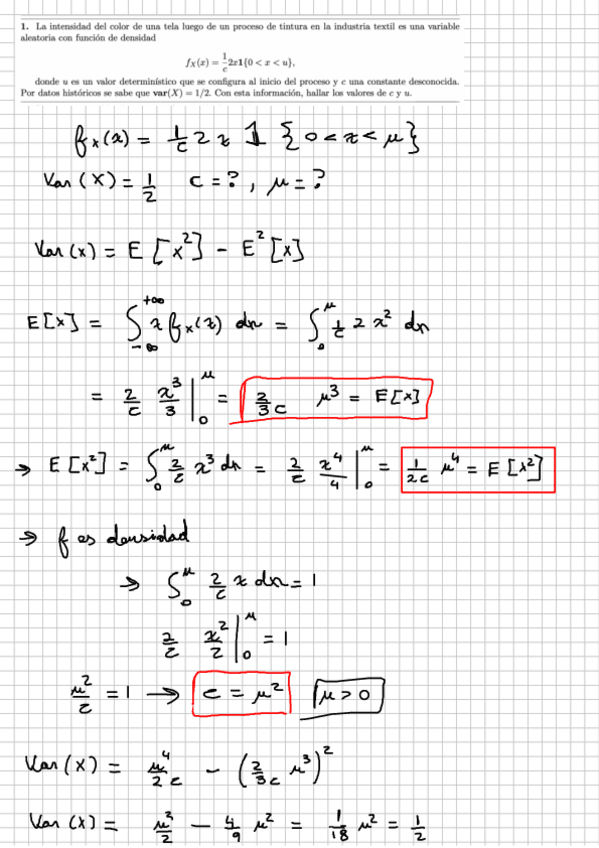 1. La intensidad del color de una tela luego de un proceso de tintura en la industria textil es una variable
aleatoria con función de densidad
f_X(x) = 1/c 2x1{0 < x < u},
donde u es un valor determinístico que se configura al inicio del proceso y c una constante desconocida.
Por datos históricos se sabe que var(X) = 1/2. Con esta información, hallar los valores de c y u.
f_x(x) = 1/c 2 x 1 {0 < x < μ}
Var (X) = 1/2 c = ? , μ = ?
Var (x) = E [x²] - E² [x]
E[x] = ∫_{-∞}^{+∞} x f_x(x) dx = ∫_0^μ 1/c 2 x² dx
= 2/c x³/3 |_0^μ = 2/3c μ³ = E[x]
→ E [x²] = ∫_0^μ 2/c x³ dx = 2/c x⁴/4 |_0^μ = 1/2c μ⁴ = E [x²]
→ f es densidad
→ ∫_0^μ 2/c x dx = 1
2/c x²/2 |_0^μ = 1
μ²/c = 1 → c = μ² μ > 0
Var (X) = μ⁴/2c - (2/3c μ³)²
Var (X) = μ²/2 - 4/9 μ² = 1/18 μ² = 1/2